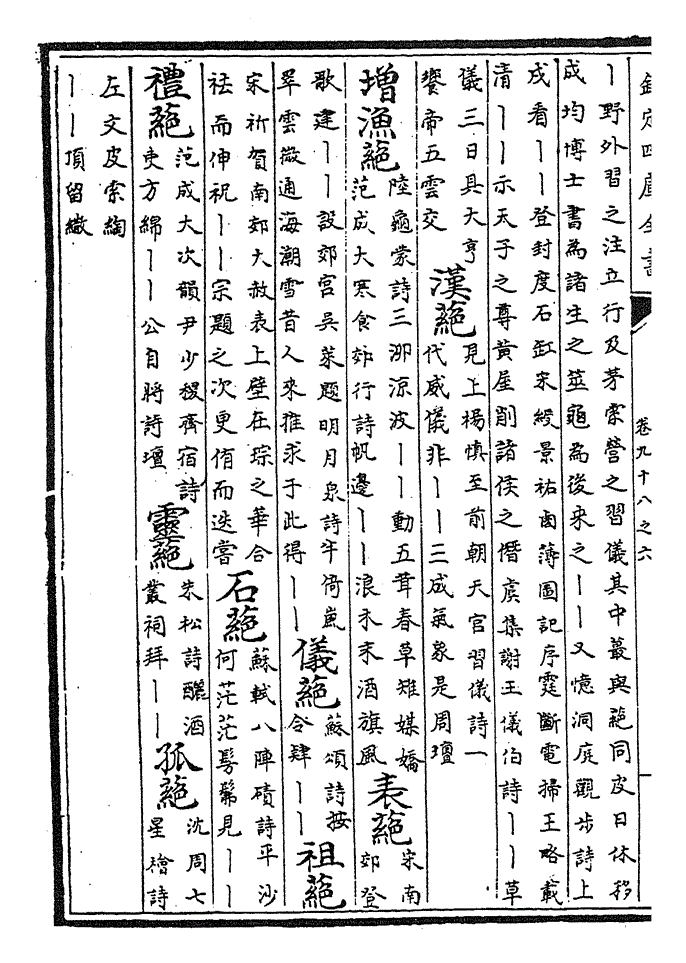 欽定四庫全書 卷九十八之六
丨野外習之注立行及茅索營之習儀其中蕞與蕝同皮日休移
成均博士書為諸生之筮龜為後来之丨丨又憶洞庭觀步詩上
戍看丨丨登封度石缸宋綬景祐鹵薄圖記序霓斷電掃王略載
清丨丨示天子之尊黄屋削諸侯之僭虞集謝王儀伯詩丨丨草
儀三日具大亨
饗帝五雲交
漢蕝
見上楊慎至前朝天宫習儀詩一
代威儀非丨丨三成氣象是周壇
增漁蕝
陸龜蒙詩三泖涼波丨丨動五茸春草雉媒嬌
范成大寒食郊行詩帆邊丨丨浪未来酒旗風
表蕝
宋南
郊登
歌建丨丨設郊宮吳萊題明月泉詩半倚嵐
翠雲微通海潮雪昔人來推求于此得丨丨
儀蕝
蘇頌詩按
令肄丨丨
祖蕝
宋祈賀南郊大赦表上壁在琮之華合
祛而伸祝丨丨宗題之次更侑而迭嘗
石蕝
蘇軾八陣磧詩平沙
何茫茫髣髴見丨丨
禮蕝
范成大次韻尹少稷齊宿詩
吏方綿丨丨公自將詩壇
靈蕝
朱松詩釃酒
叢祠拜丨丨
孤蕝
沈周七
星檜詩
左文皮索綯
丨丨頂留繖